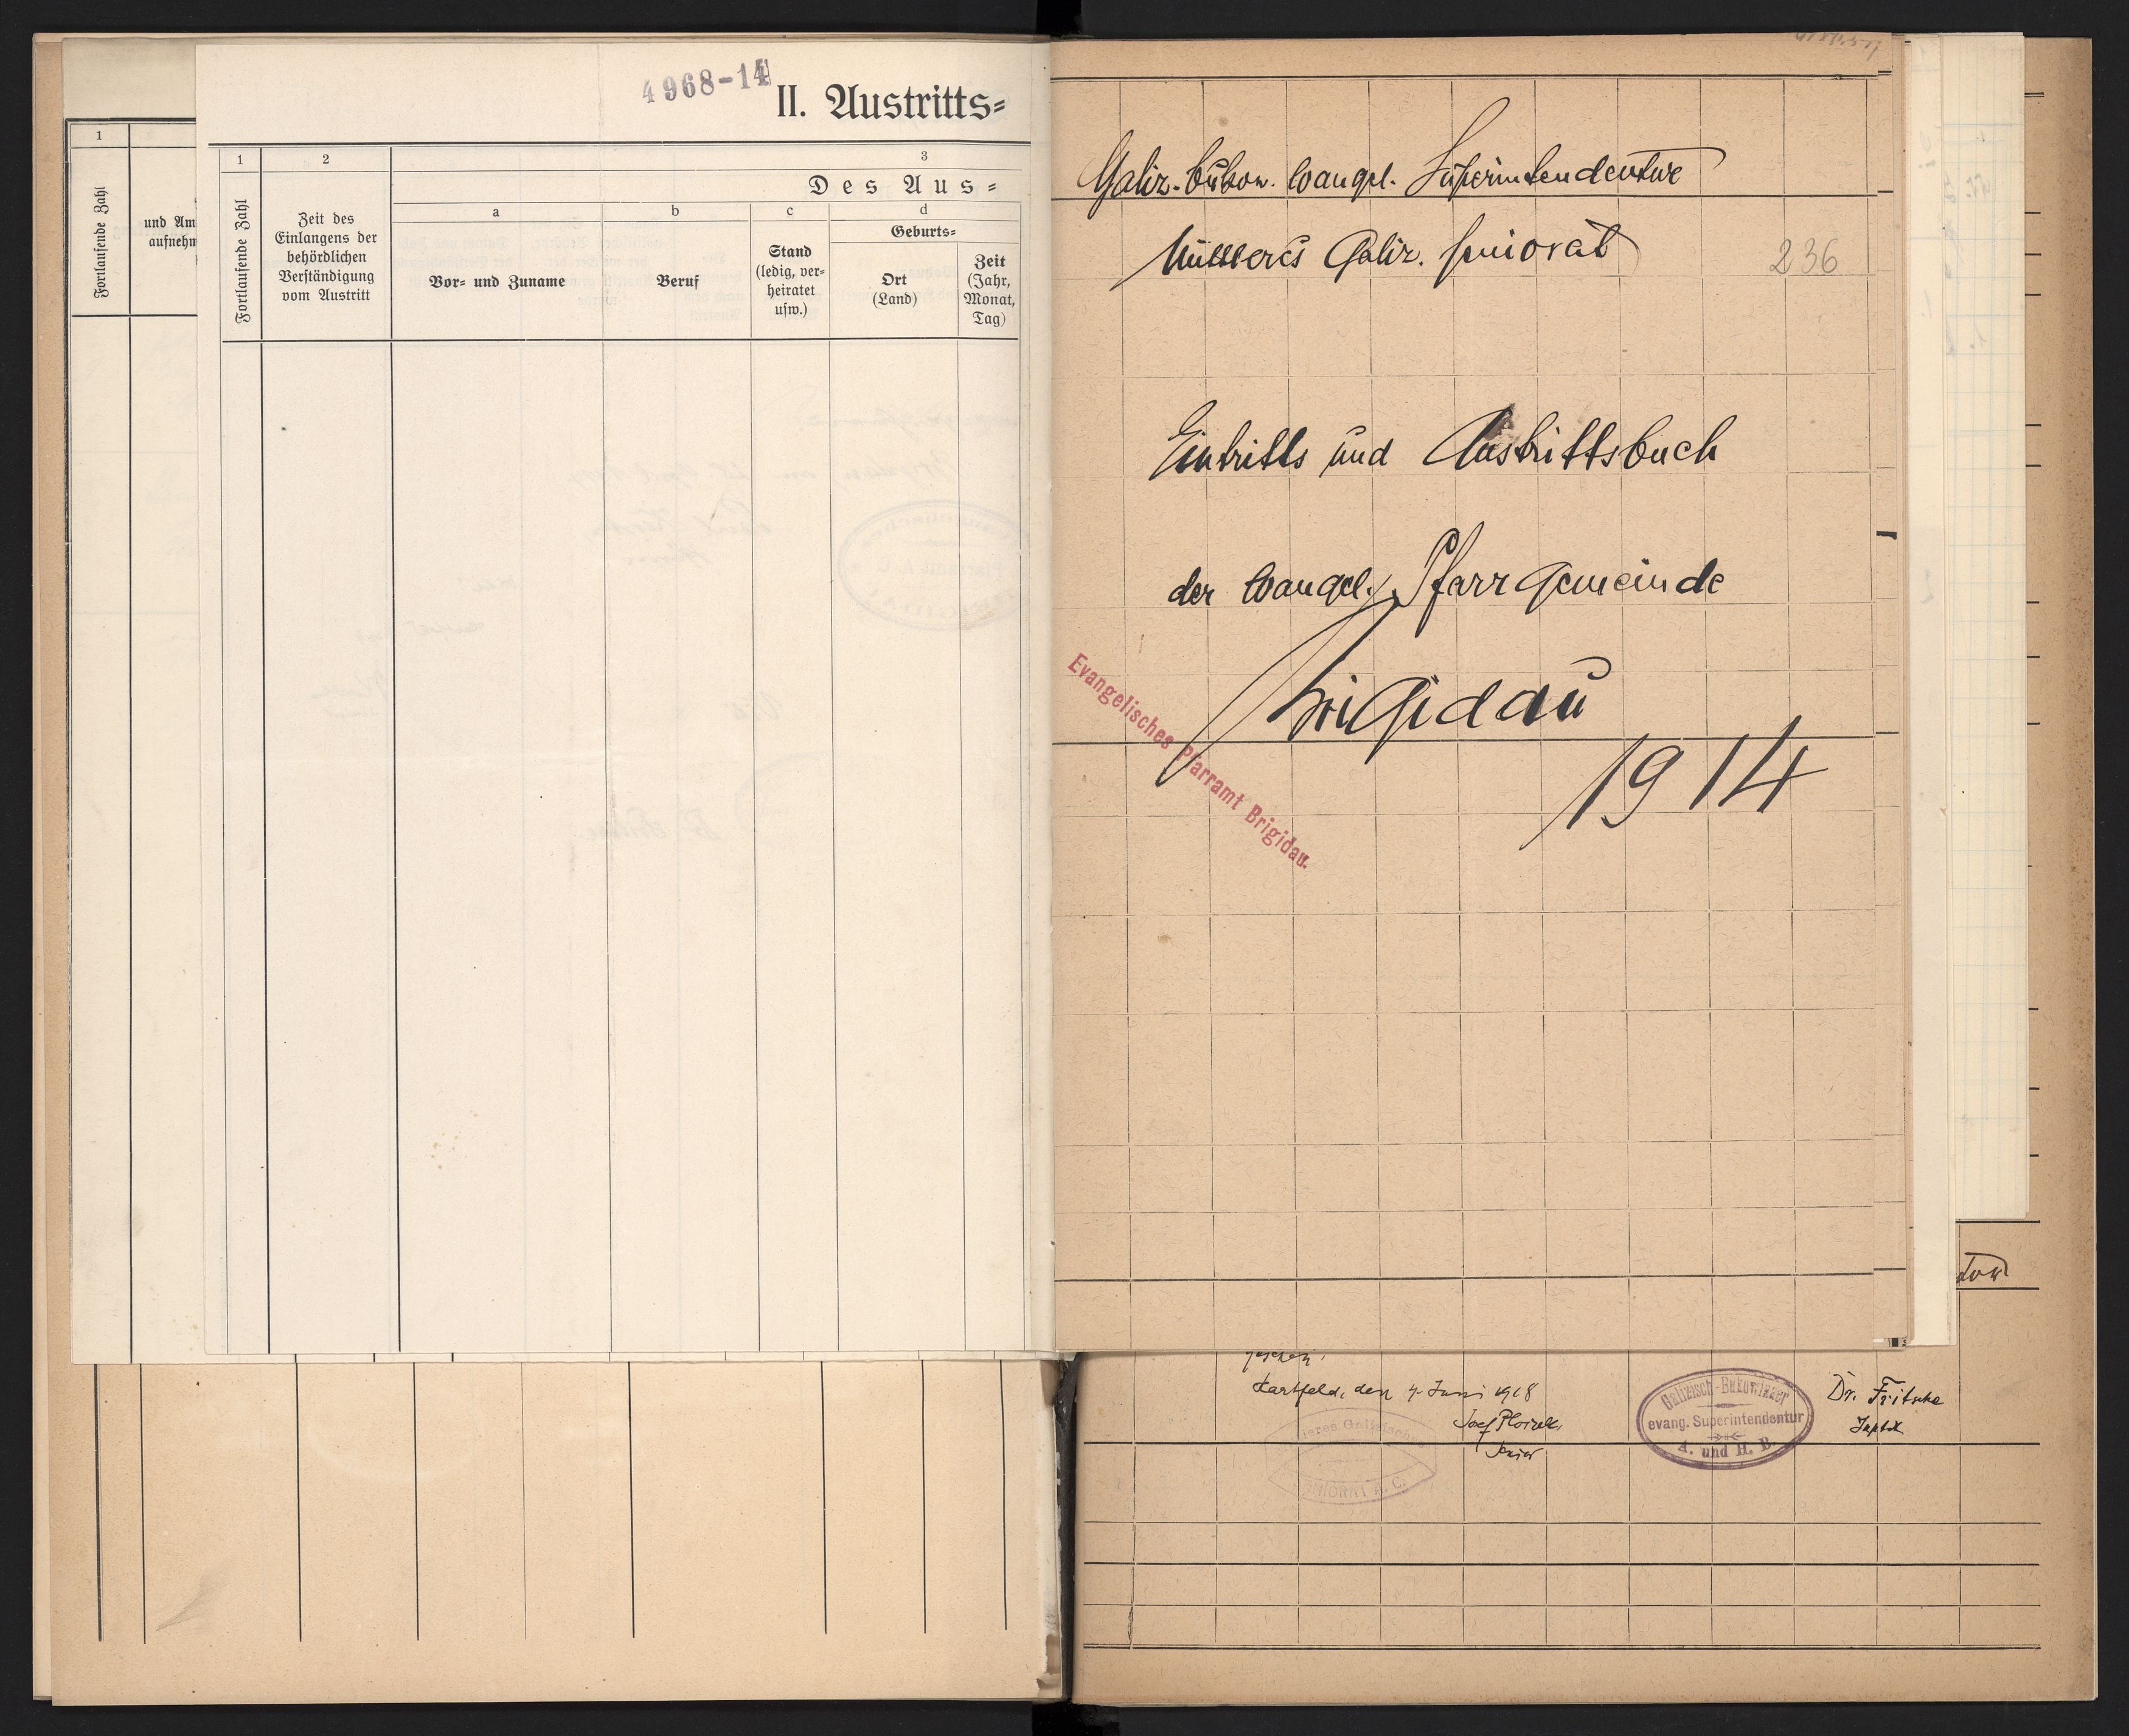 4968-14
II. Austritts=
1
und Am
aufnehm
Fortlaufende Zahl
1
2
3
Des Aus=
Fortlaufende Zahl
Zeit des
Einlangens der
behördlichen
Verständigung
vom Austritt
a
b
c
d
Geburts=
Vor- und Zuname
Beruf
Stand
(ledig, ver=
heiratet
usw.)
Ort
(Land)
Zeit
(Jahr,
Monat,
Tag)
Galiz.-bukow. evangel. Superintendentur
Mittleres Galiz. Seniorat
236
Eintritts und Austrittsbuch
der evangel. Pfarrgemeinde
Brigidau
1914
Evangelisches Pfarramt Brigidau.
den 4. Juni 1918
Senior
Galizisch-Bukowinaer
evang. Superintendentur
A. und H. B.
Dr. Fritsche
Suptdt